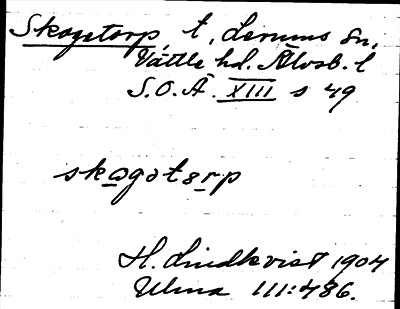 Skogstorp t, Lerums sn,
Vättle hd. Älvsb. l
S.O.Ä. XIII s 49
skogstorp
H. Lindkvist 1904
Ulma 111:486.